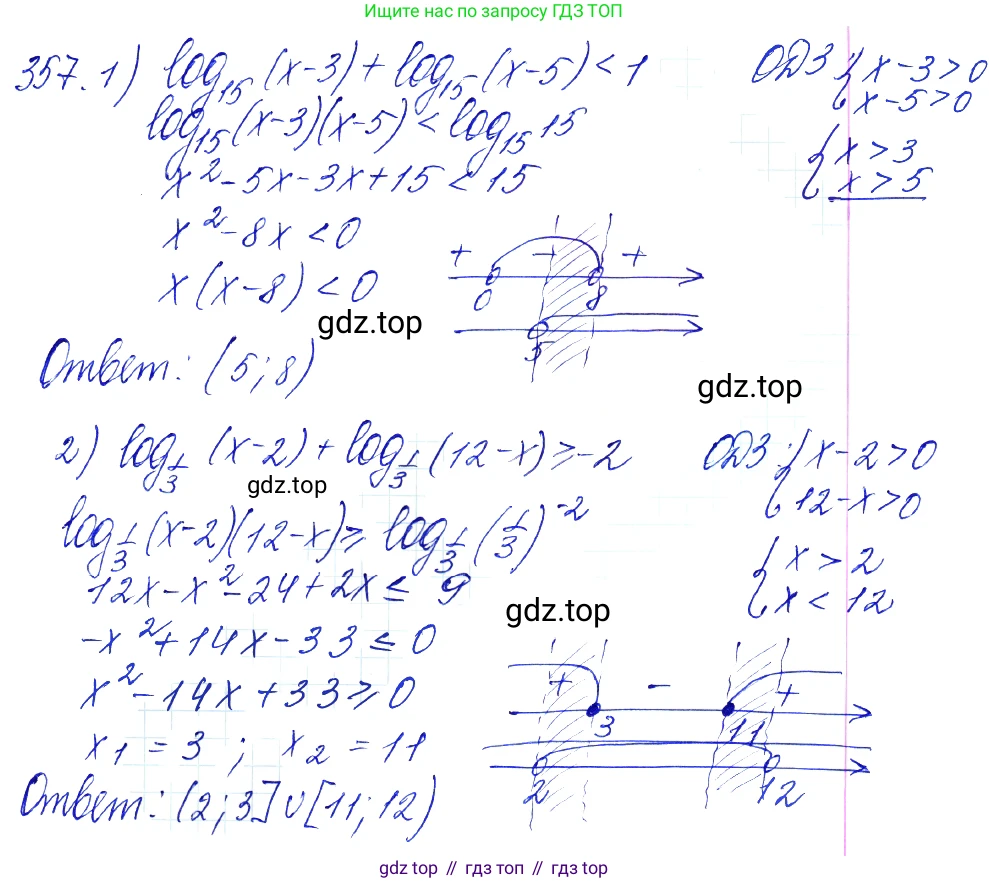 Ищите нас по запросу ГДЗ ТОП
357. 1) log₁₅ (x-3) + log₁₅ (x-5) < 1 ОДЗ { x-3>0
x-5>0
log₁₅(x-3)(x-5) < log₁₅ 15
{ x>3
x>5
x² - 5x - 3x + 15 < 15
x² - 8x < 0
x (x-8) < 0
+ - +
0 8
5
gdz.top
Ответ: (5; 8)
gdz.top
2) log_{1/3} (x-2) + log_{1/3} (12-x) ≥ -2 ОДЗ: { x-2>0
12-x>0
gdz.top
log_{1/3} (x-2)(12-x) ≥ log_{1/3} (1/3)^{-2}
{ x > 2
x < 12
12x - x² - 24 + 2x ≤ 9
gdz.top
-x² + 14x - 33 ≤ 0
x² - 14x + 33 ≥ 0
+ - +
3 11
x₁ = 3 ; x₂ = 11
2 12
Ответ: (2; 3] ∪ [11; 12)
gdz.top // гдз топ // gdz top